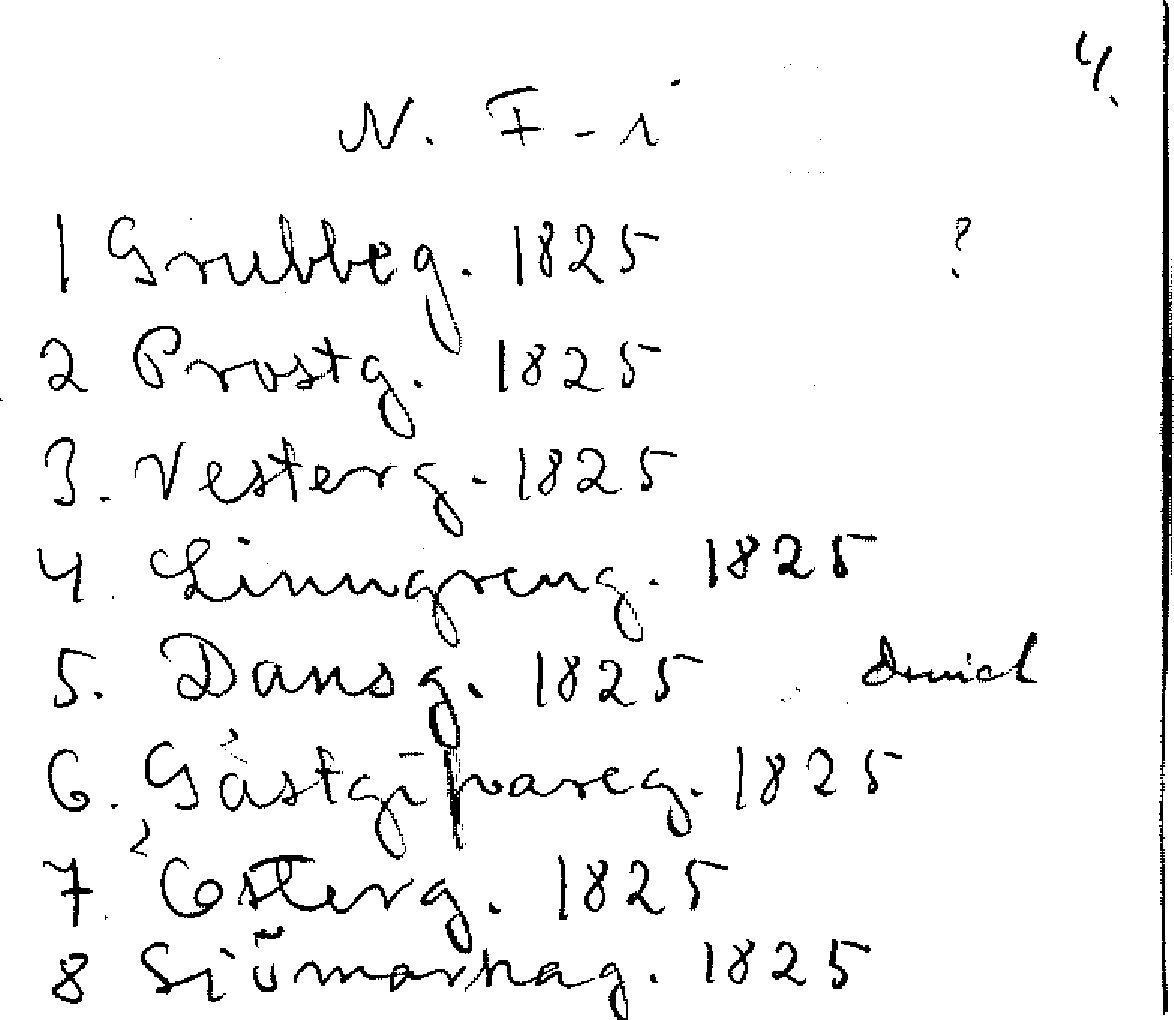 4.
N. F-i
1 Grubbeg. 1825 ?
2 Prostg. 1825
3. Vesterg. 1825
4. Linngreng. 1825
5. Dansg. 1825
6. Gästgifvareg. 1825
7. Österg. 1825
8 Sjömanhag. 1825